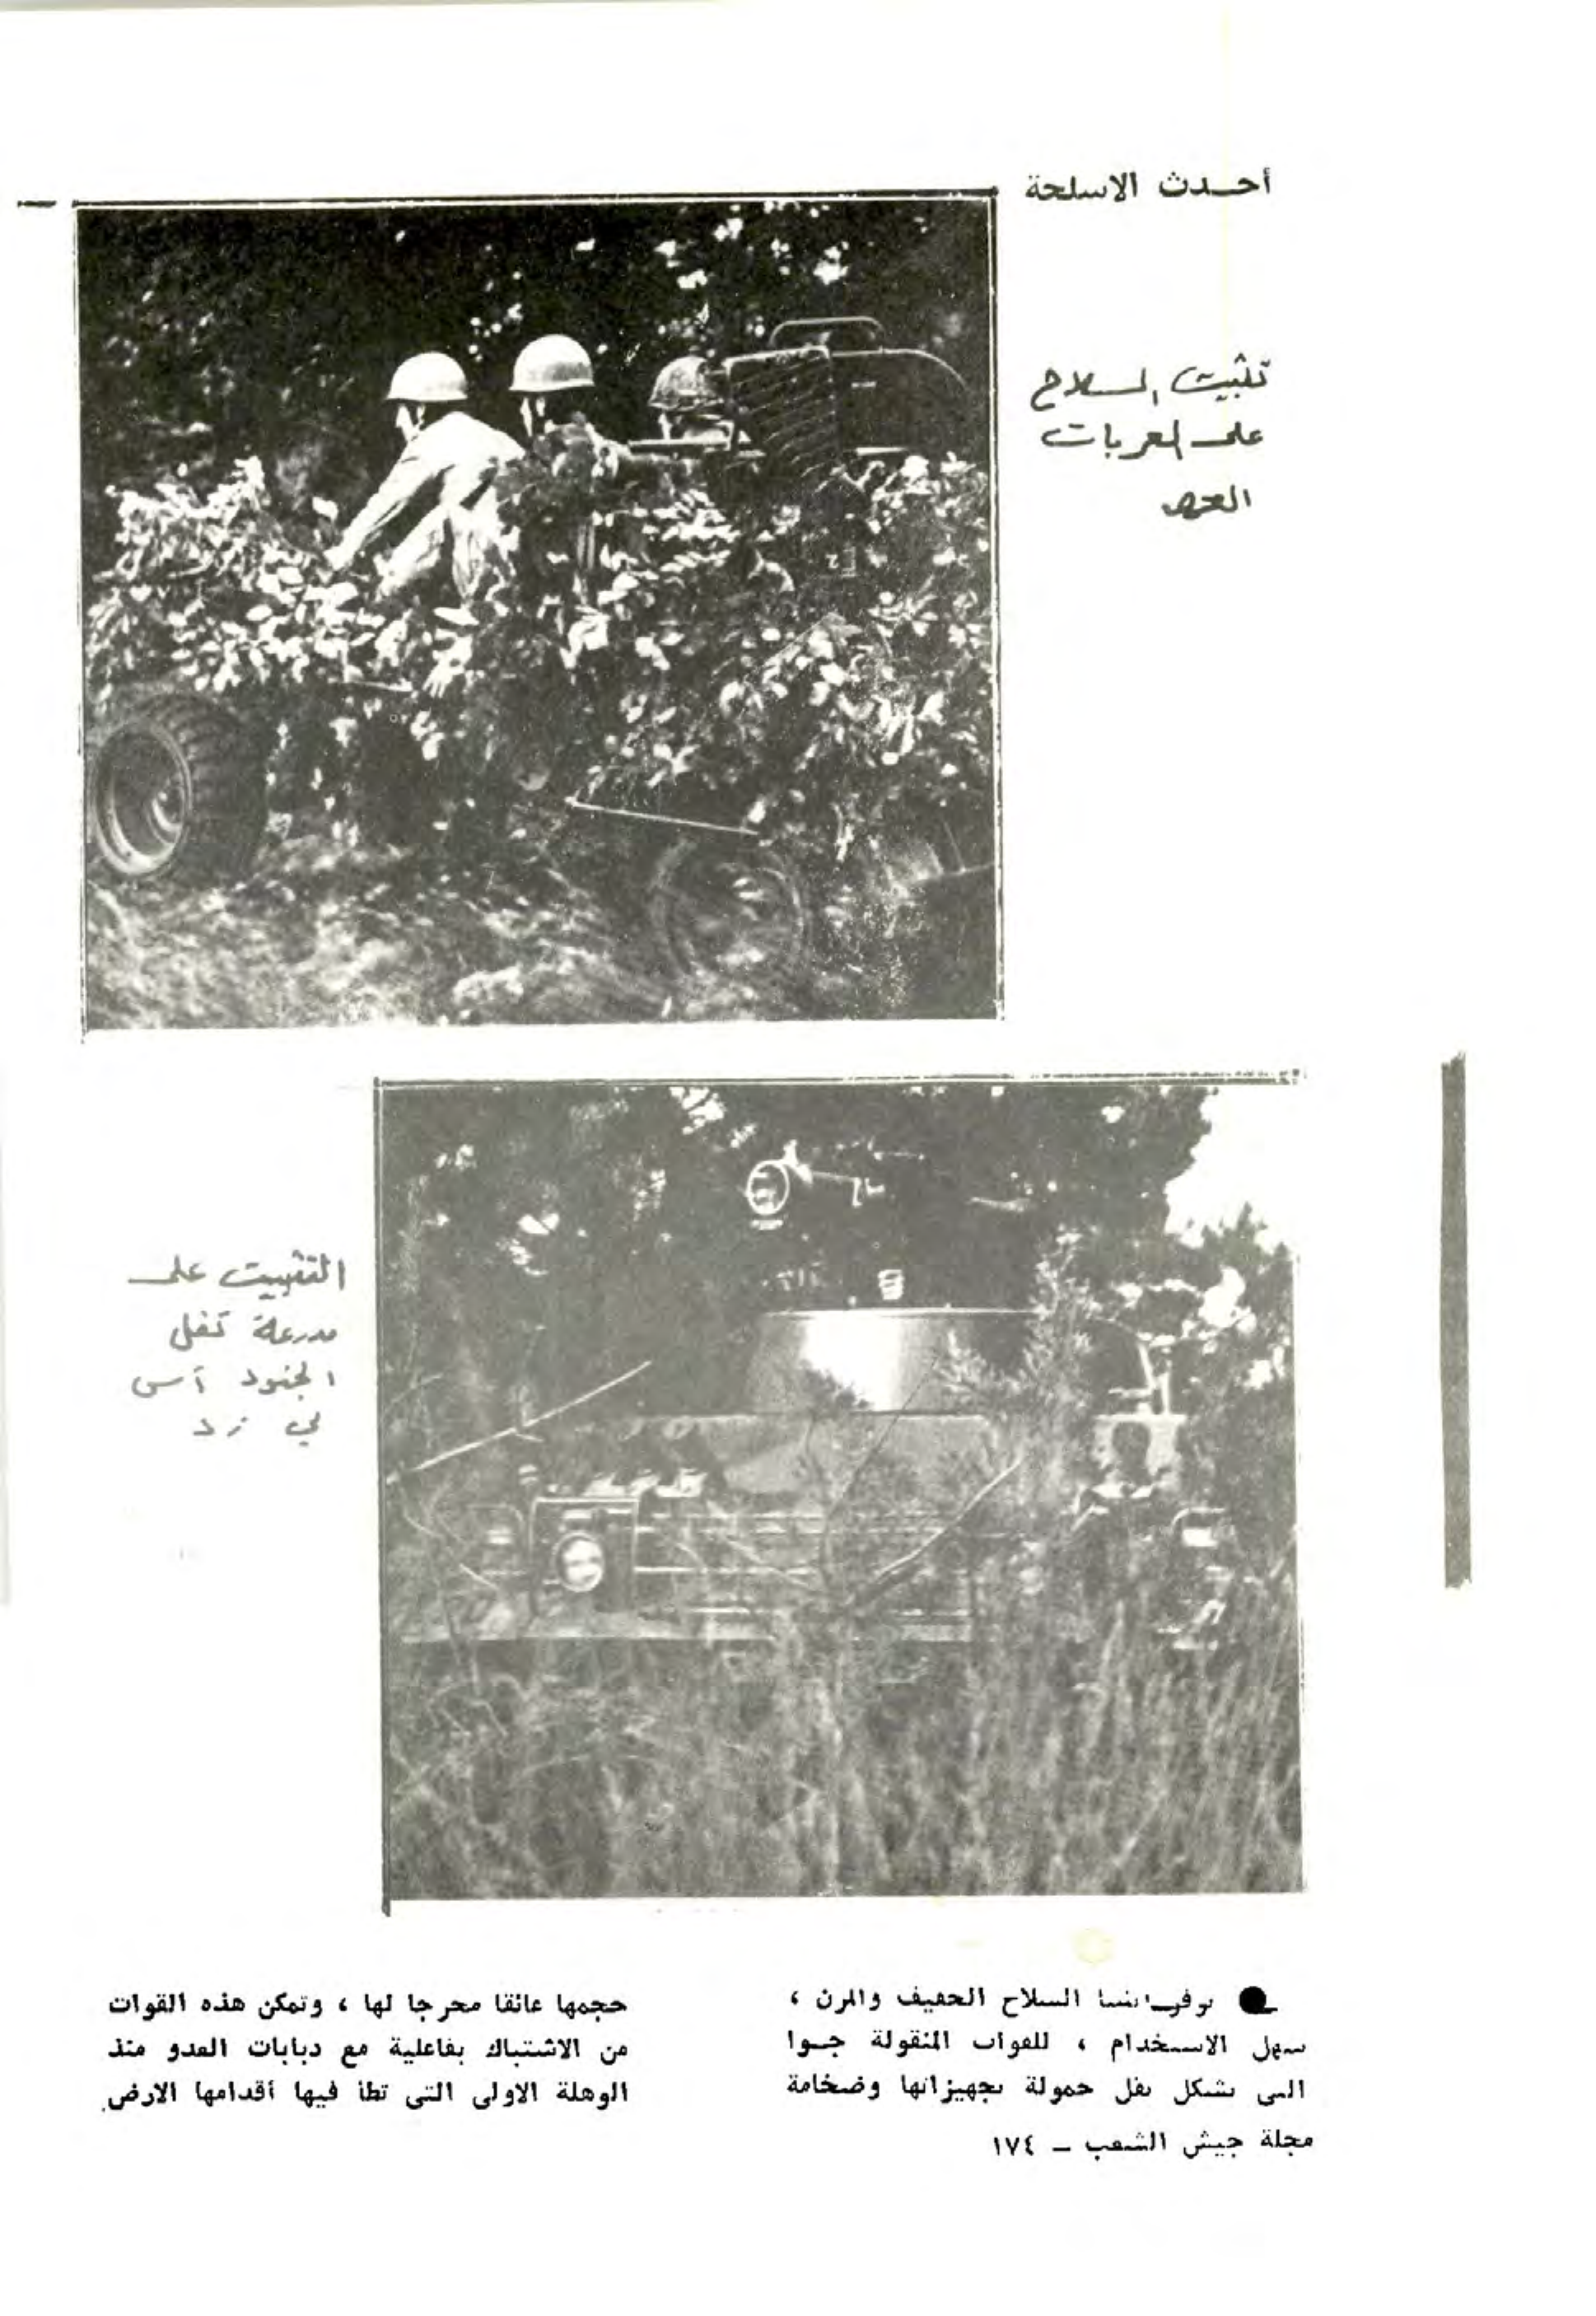 أحدث الاسلحة
تثبيت السلاح
على العربات
التثبيت على
مدرعة تنقل
الجنود آسى
لي زد
توفر ايضا السلاح الخفيف والمرن ،
سهل الاستخدام ، للقوات المنقولة جوا
التي تشكل ثقل حمولة تجهيزاتها وضخامة
حجمها عائقا محرجا لها ، وتمكن هذه القوات
من الاشتباك بفاعلية مع دبابات العدو منذ
الوهلة الاولى التي تطأ فيها أقدامها الارض.
مجلة جيش الشعب - ١٧٤